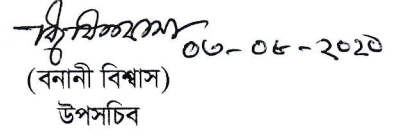 ০৩-০৮-২০২০
(বনানী বিশ্বাস)
উপসচিব